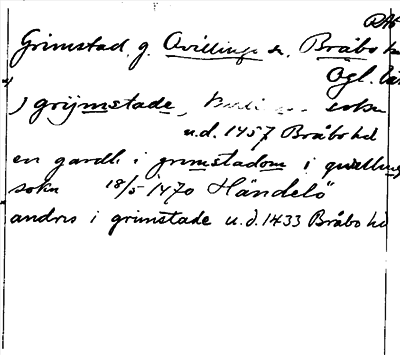 DAL
Grimstad, g. Qvillinge sn, Bråbo hd
Ögl. län
j grijmstade, soku
u.d. 1457 Bråbo hd
en gardh i grimstadom i quælling
sokn 18/5 1470 Händelö
andris i grimstade u.d. 1433 Bråbo hd